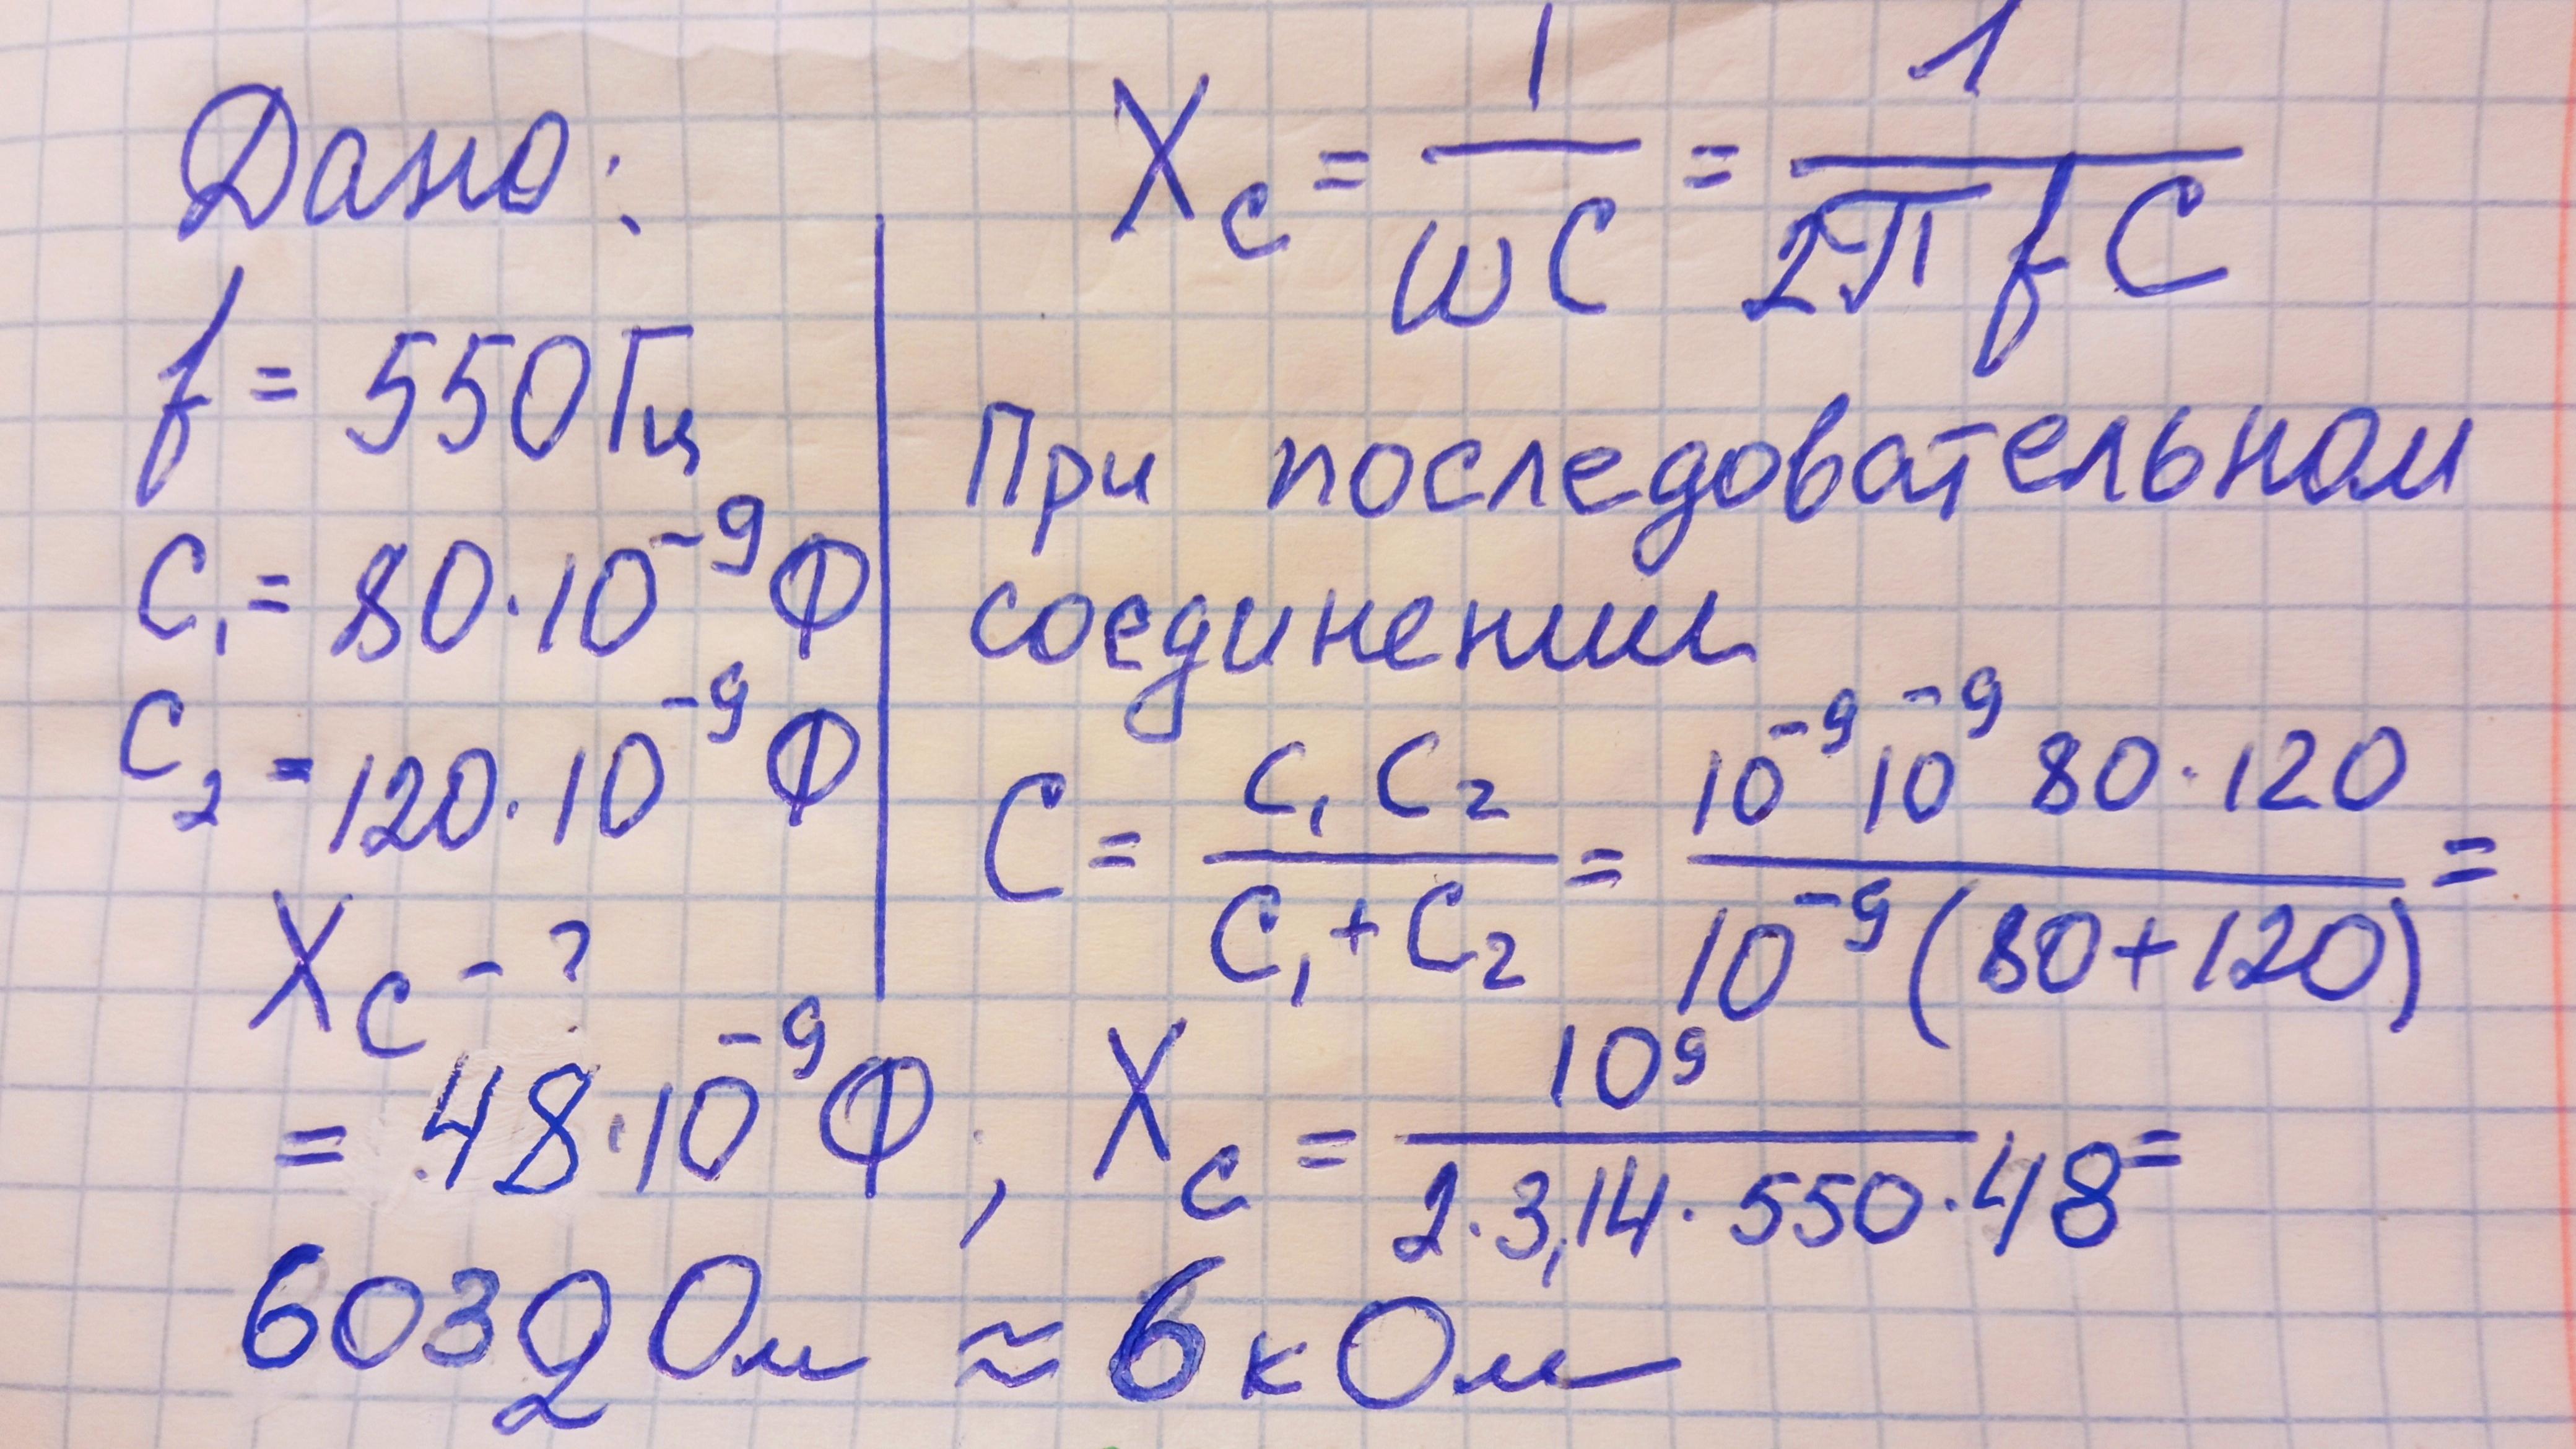 Дано:
f = 550Гц
C₁ = 80·10⁻⁹ Ф
C₂ = 120·10⁻⁹ Ф
X_C - ?
X_C = 1/(ωC) = 1/(2πfC)
При последовательном
соединении
C = C₁C₂/(C₁+C₂) = 10⁻⁹10⁻⁹80·120/(10⁻⁹(80+120)) =
= 48·10⁻⁹ Ф, X_C = 10⁹/(2·3,14·550·48) =
6032 Ом ≈ 6 кОм